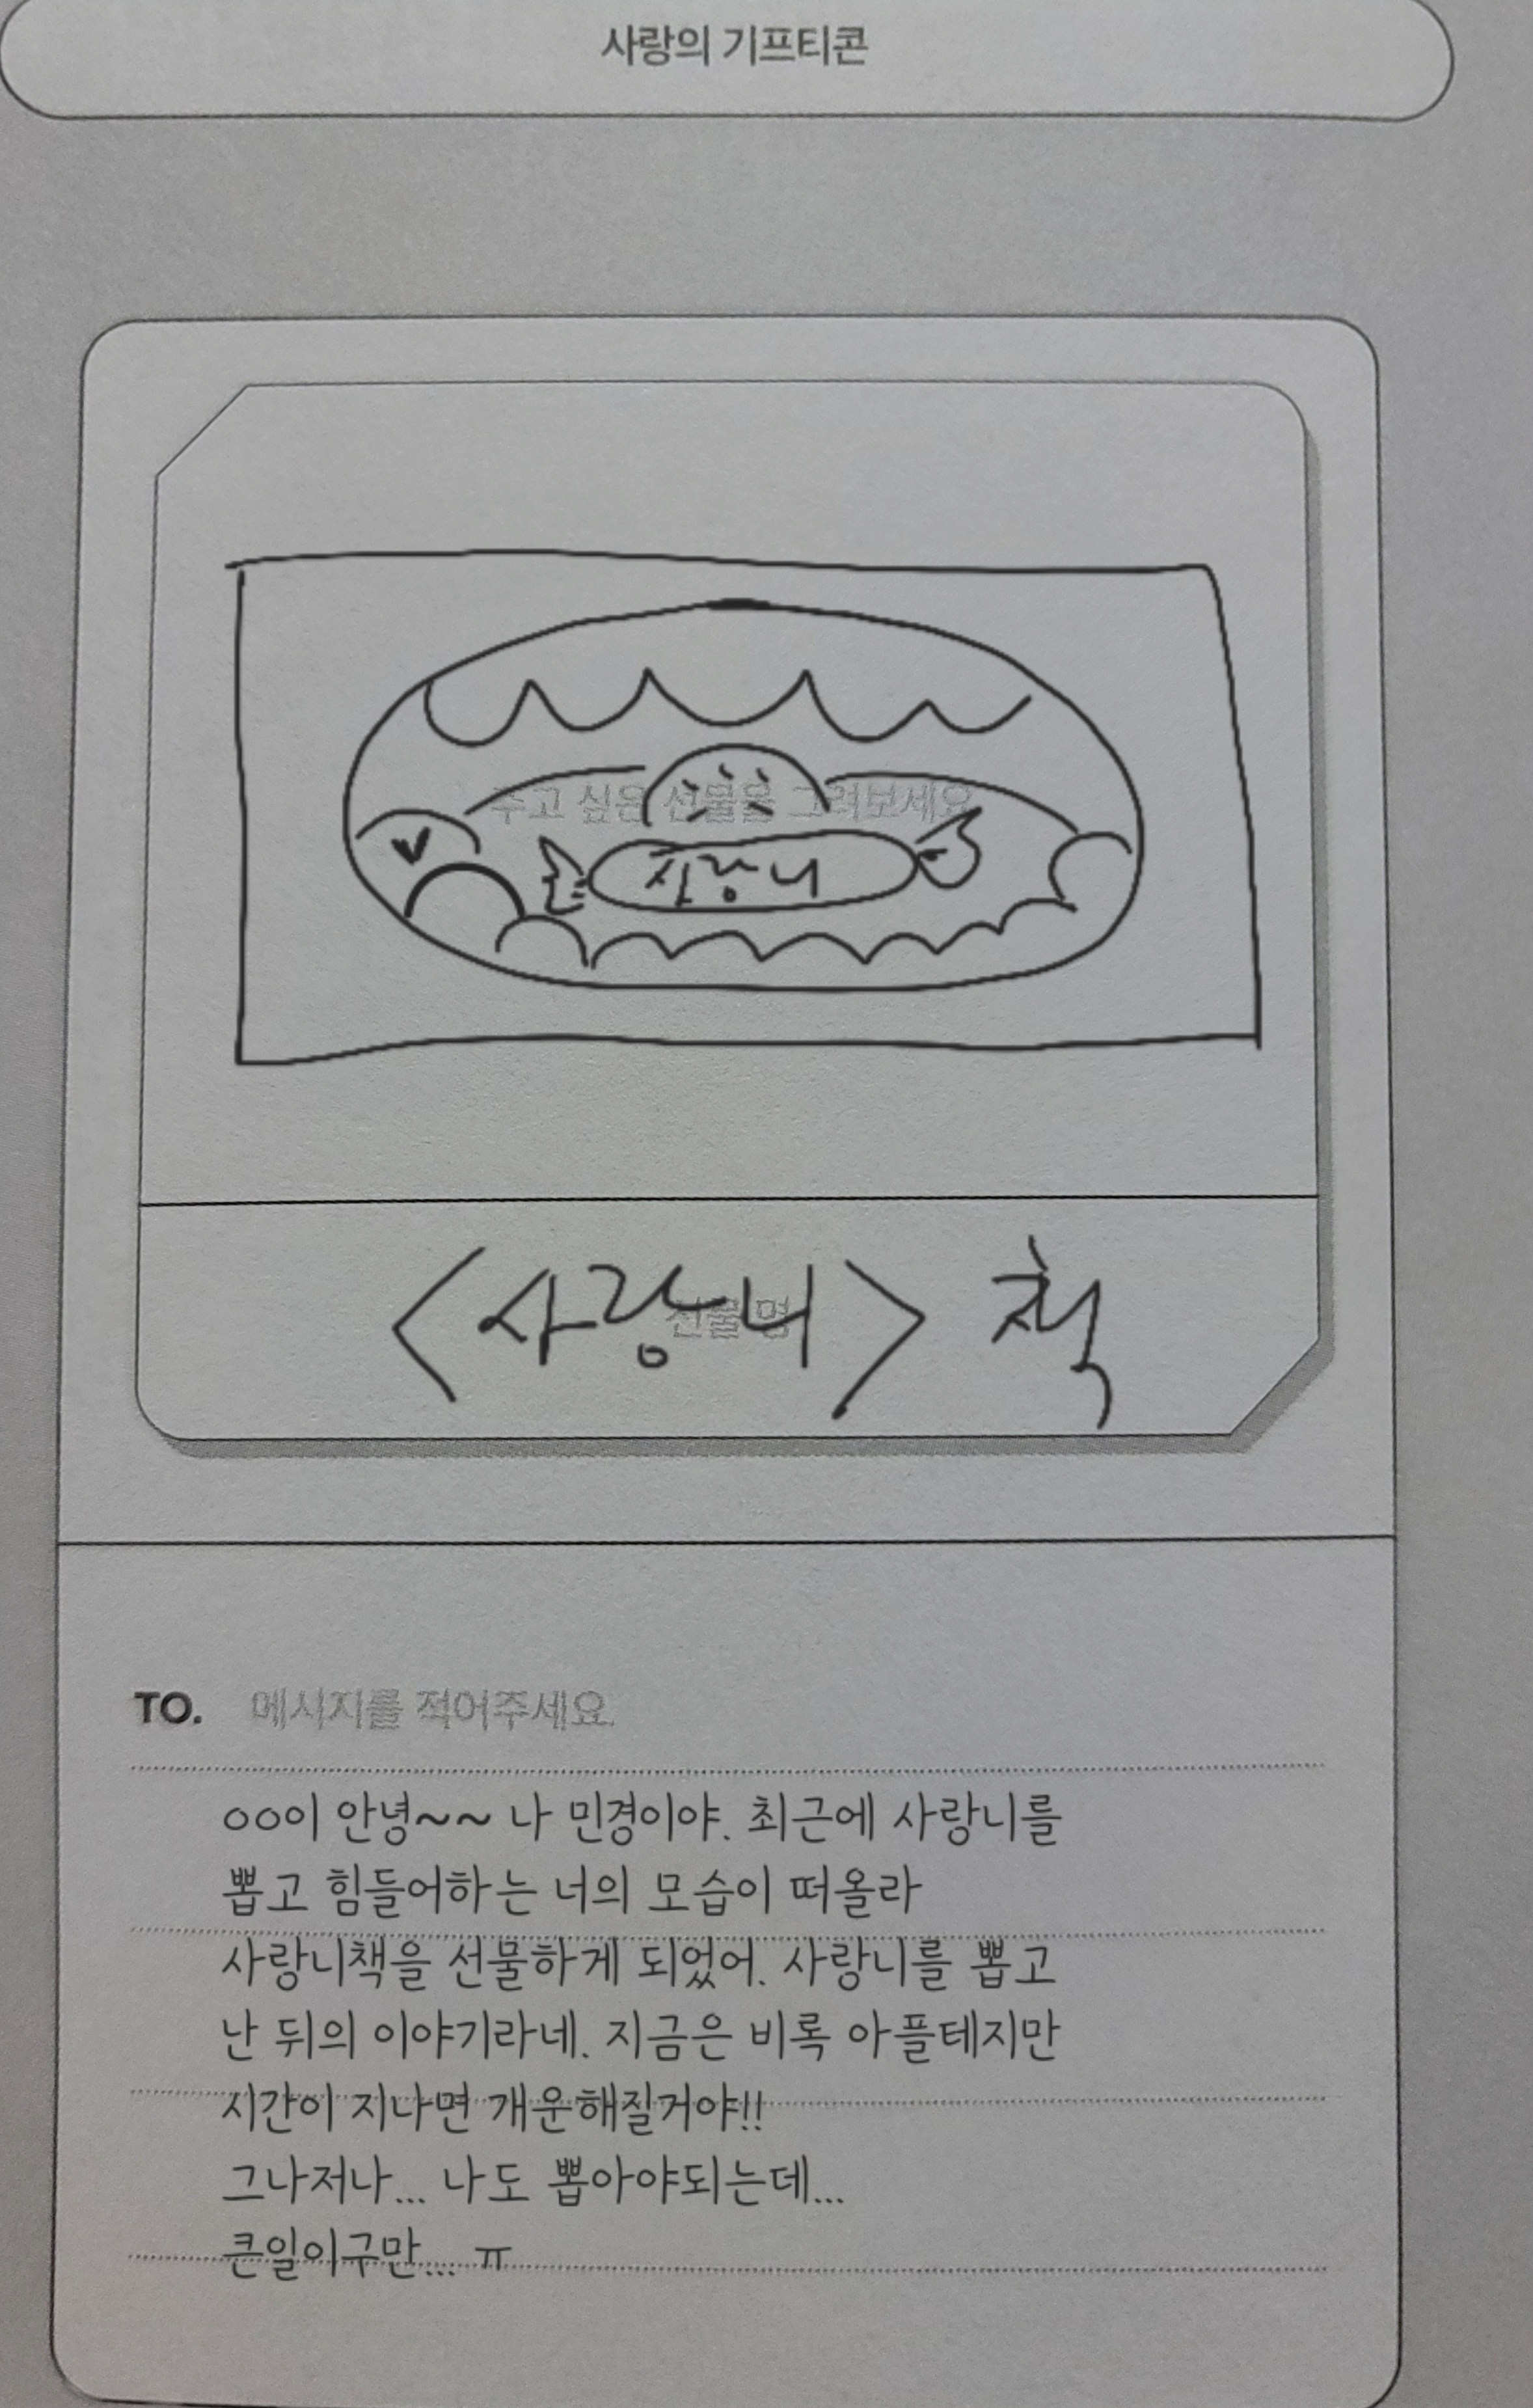 사랑의 기프티콘
주고 싶은 선물을 그려보세요
사랑니
<사랑니> 책
선물명
TO. 메시지를 적어주세요.
ㅇㅇ이 안녕~~ 나 민경이야. 최근에 사랑니를
뽑고 힘들어하는 너의 모습이 떠올라
사랑니책을 선물하게 되었어. 사랑니를 뽑고
난 뒤의 이야기라네. 지금은 비록 아플테지만
시간이 지나면 개운해질거야!!
그나저나... 나도 뽑아야되는데...
큰일이구만... ㅠ